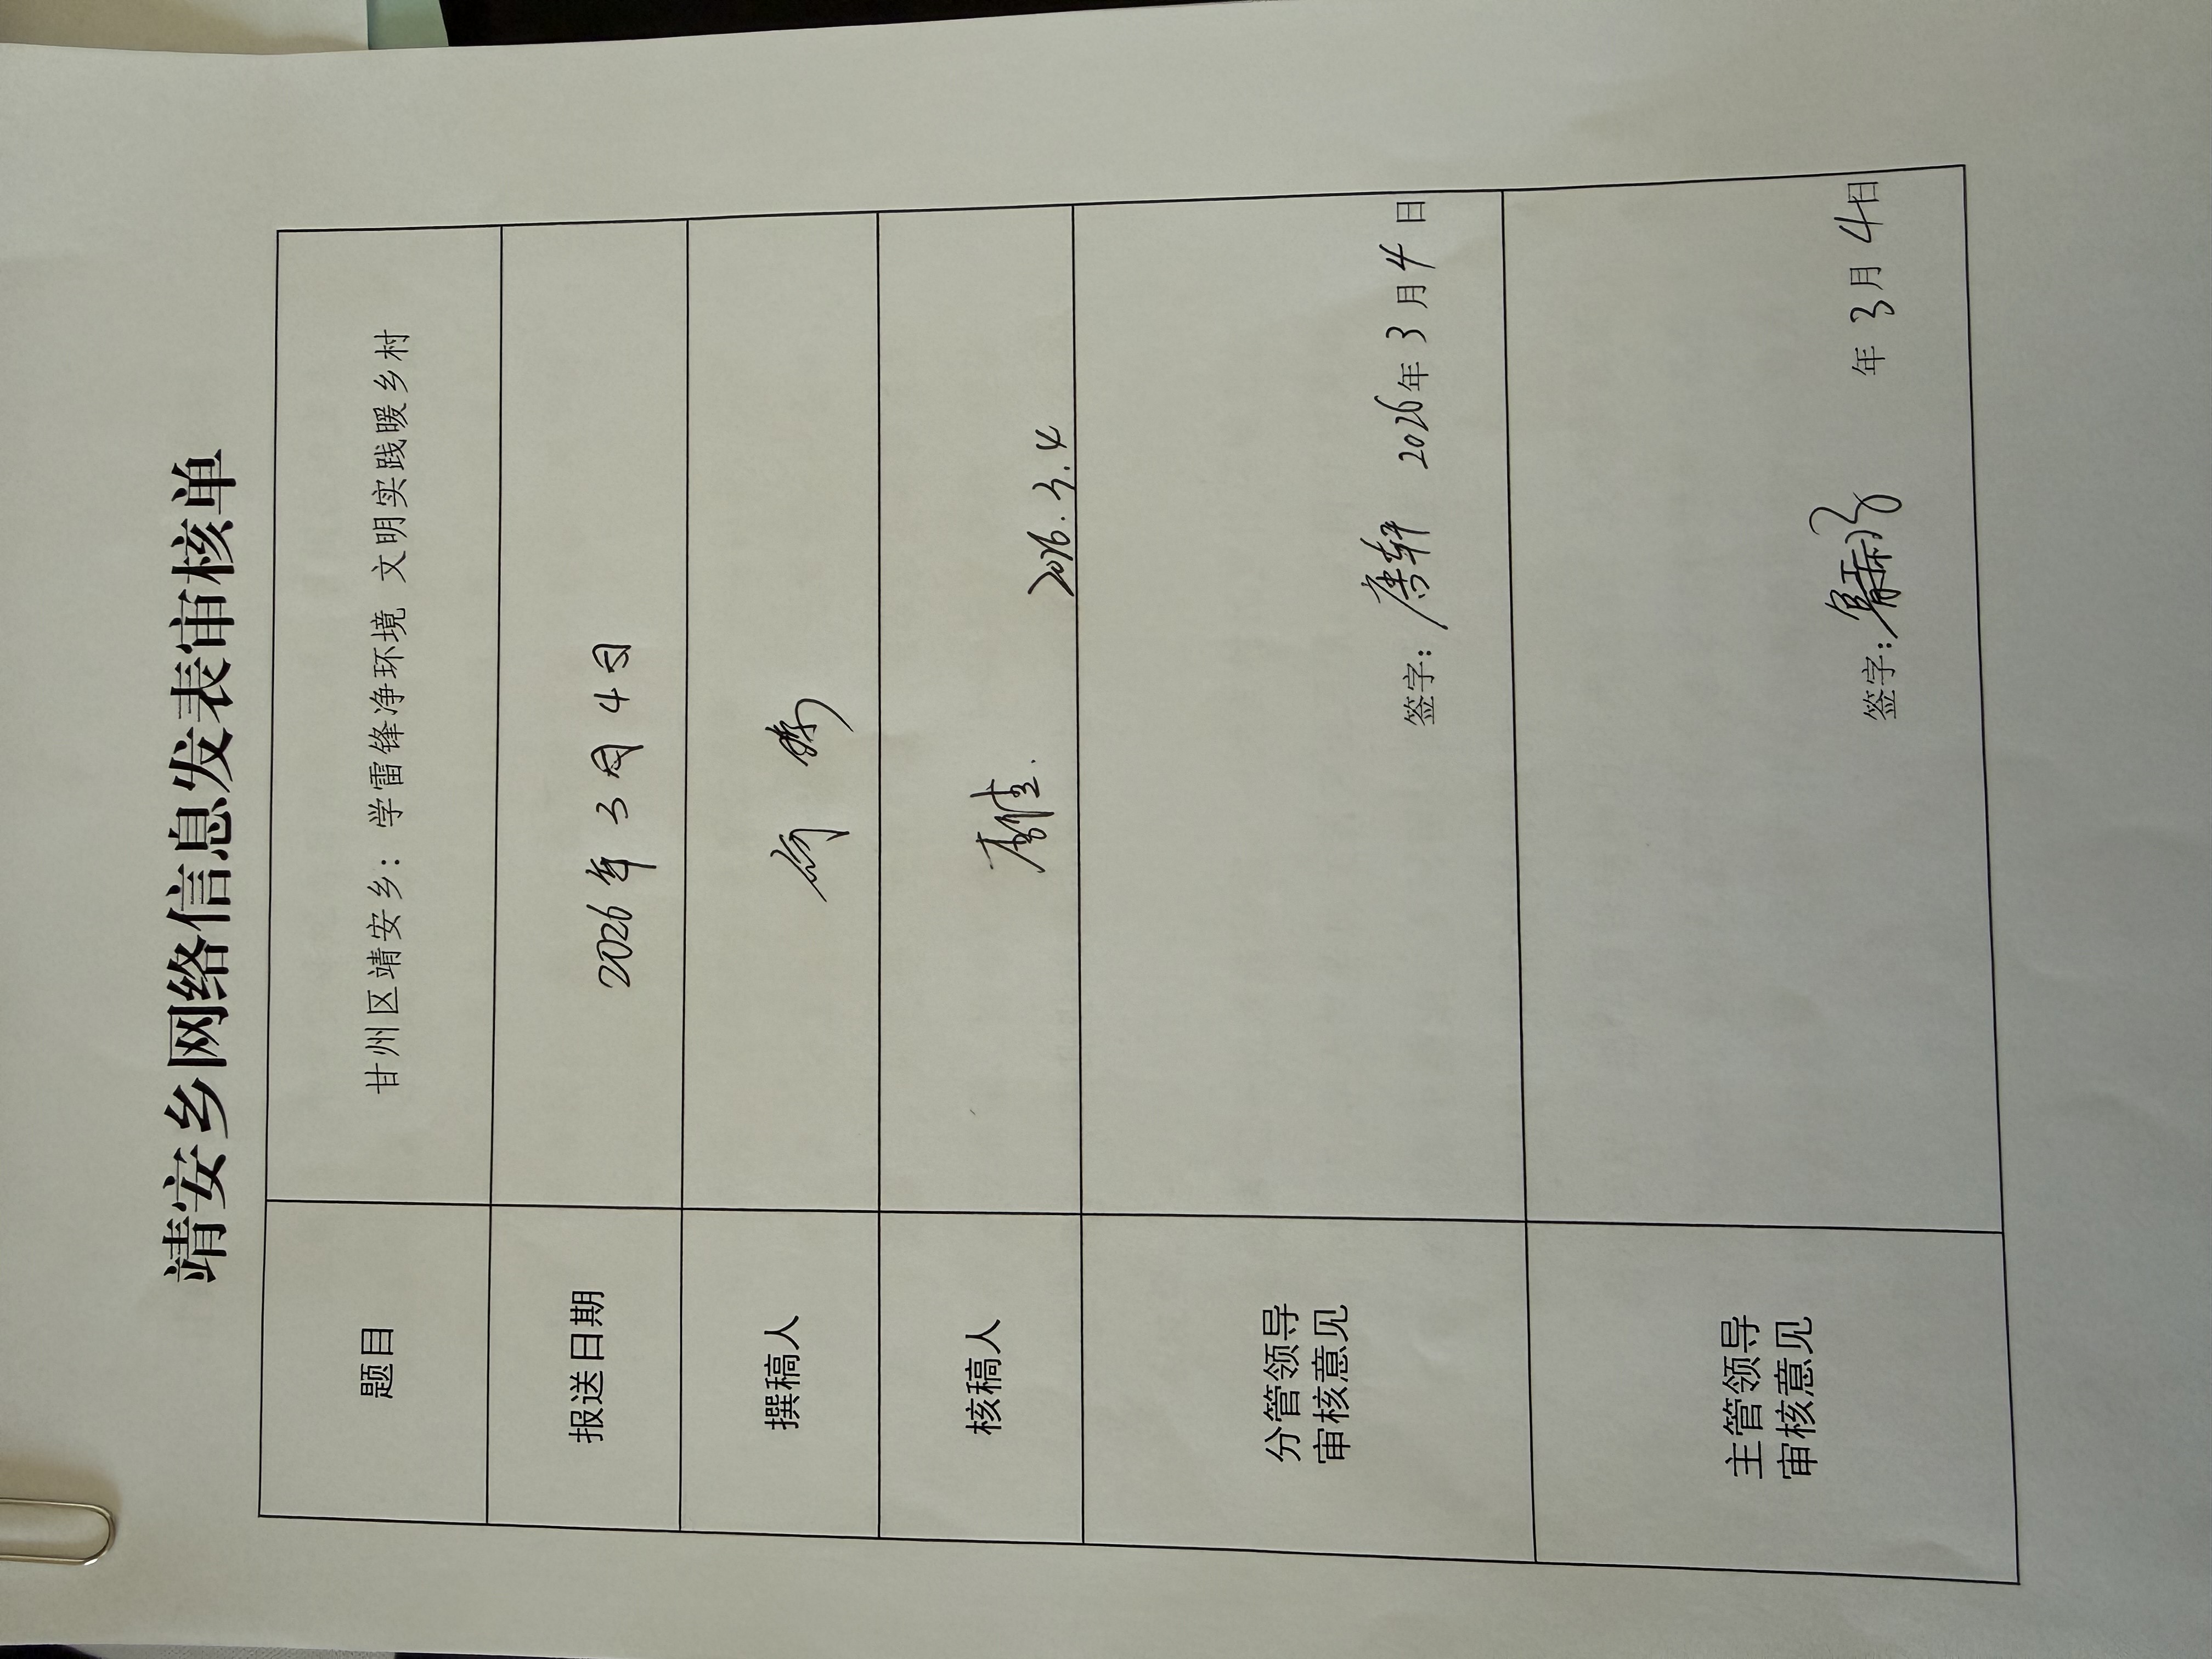 靖安乡网络信息发表审核单
题目
甘州区靖安乡：学雷锋净环境 文明实践暖乡村
报送日期
2026年3月4日
撰稿人
核稿人
2026.3.4
分管领导
审核意见
签字：唐轩 2026年3月4日
主管领导
审核意见
签字： 年3月4日